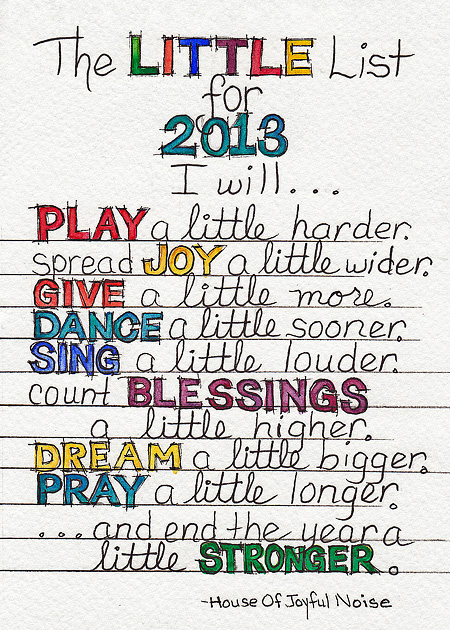 The LITTLE List
for
2013
I will...
PLAY a little harder.
spread JOY a little wider.
GIVE a little more.
DANCE a little sooner.
SING a little louder.
count BLESSINGS
a little higher.
DREAM a little bigger.
PRAY a little longer.
...and end the year a
little STRONGER.
-House Of Joyful Noise